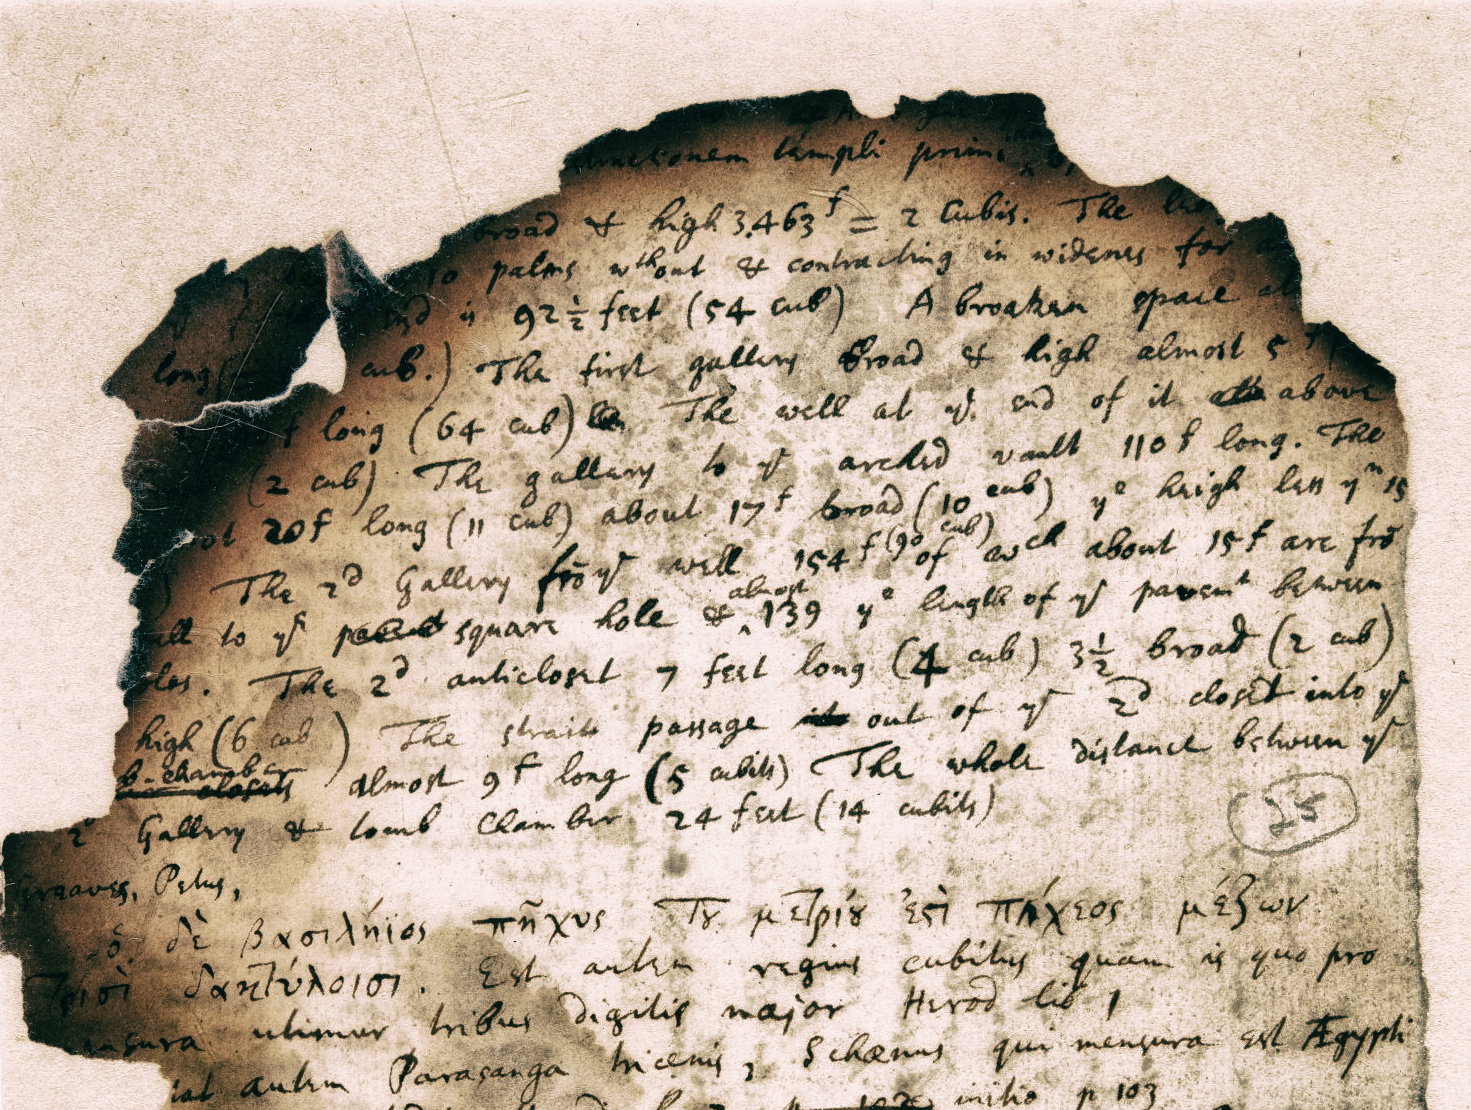 unctionem templi primi
broad & high 3.463f = 2 Cubis. The
10 palms wthout & contracting in widenes for
end is 92½ feet (54 cub) A broaken space
long ( cub.) The first gallery broad & high almost 5
f long (64 cub) The well at ye end of it above
(2 cub) The gallery to ye arched vault 110f long. The
ot 20f long (11 cub) about 17f broad (10 cub) ye heigh less yn 15
) The 2d Gallery frō ye well 154f (90 cub) of wch about 15f are frō
all to ye square hole & almost 139 ye length of ye pavemt between
oles. The 2d anticloset 7 feet long (4 cub) 3½ broad (2 cub)
high (6 cub) The strait passage out of ye 2d closet into ye
b-chamber closets almost 9f long (5 cubits) The whole distance between ye
2d Gallery & tomb Chamber 24 feet (14 cubits)
25
Greaves, Petus,
ὁ δὲ βασιλήϊος πῆχυς Τȣ μετρίȣ ἐϛὶ πήχεος μέζων
τρισὶ δακτύλοισι. Est autem regius cubitus quam is quo pro
ensura utimur tribus digitis major Herod lib 1
iat autem Parasanga tricenis, Schænus qui mensura est Ægypti
initio p 103